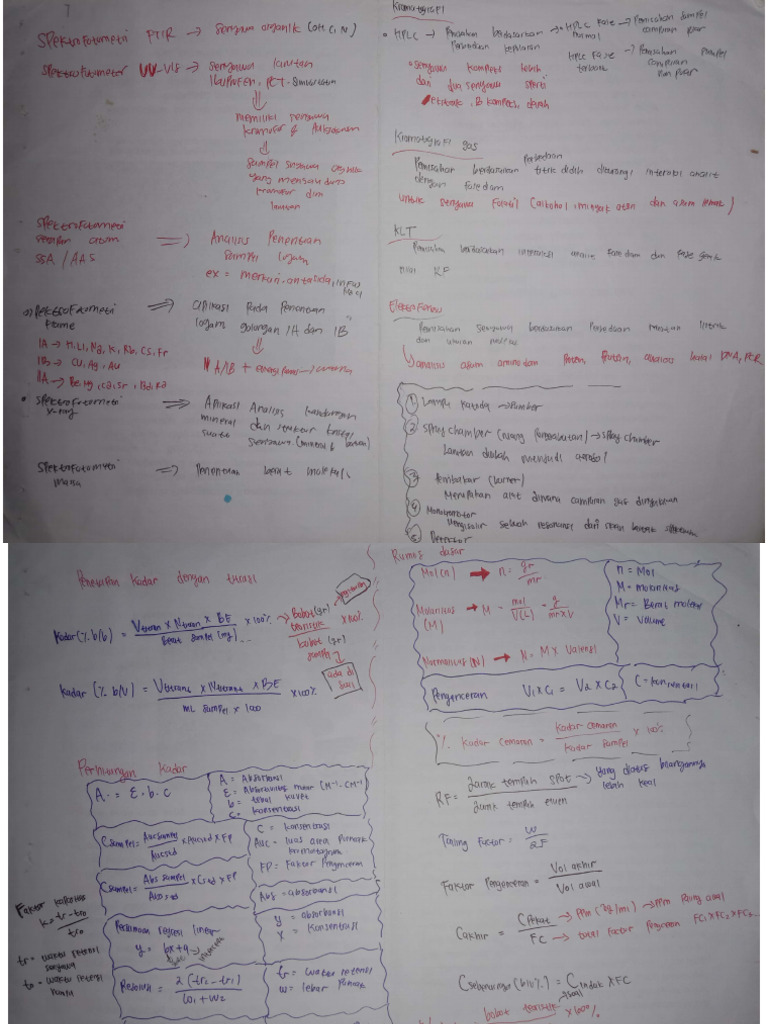 Spektrofotometri FTIR → senyawa organik (OH, C, N)
Spektrofotometer UV-VIS → senyawa larutan
Ibuprofen, PCT
memiliki senyawa
kromofor & Auksokrom
Sampel senyawa organik
yang mengandung
kromofor dlm
larutan
Spektrofotometri
serapan atom
SSA / AAS
⇒ Analisis Penentuan
sampel logam
ex = merkuri, antasida, infus
Spektrofotometri
Flame
⇒ aplikasi Pada Penentuan
logam golongan IA dan IB
IA → H, Li, Na, K, Rb, Cs, Fr
IB → Cu, Ag, Au
IIA → Be, Mg, Ca, Sr, Ba, Ra
IA/IB + energi panas →
Spektrofotometri
X-ray
⇒ Aplikasi Analisis kandungan
mineral dan struktur kristal
suatu senyawa (mineral & batuan)
Spektrofotometri
massa
⇒ Penentuan berat molekul
Kromatografi
• HPLC → Pemisahan berdasarkan
Perbedaan kepolaran
→ HPLC Fase
normal
→ Pemisahan sampel
campuran polar
HPLC Fase
terbalik
→ Pemisahan sampel
campuran
non polar
• senyawa kompleks lebih
dari dua senyawa seperti
ekstrak, B kompleks, darah
Kromatografi gas
Pemisahan berdasarkan perbedaan titik didih dikurangi interaksi analit
dengan fase diam
untuk senyawa Volatil (alkohol, minyak atsiri dan asam lemak)
KLT
Pemisahan berdasarkan interaksi antara fase diam dan fase gerak
nilai RF
Elektroforesis
Pemisahan senyawa berdasarkan Perbedaan muatan listrik
dan ukuran molekul
analisis asam amino dan protein, analisis halal DNA, PCR
① Lampu katoda → sumber
② Spray chamber (ruang pengkabutan) → spray chamber
Larutan diubah menjadi aerosol
③ Pembakar (burner)
Merupakan alat dimana campuran gas dinyalakan
④ Monokromator
Mengisolir sebuah resonansi dari sekian banyak spektrum
⑤ Detector
Penetapan kadar dengan titrasi
Kadar (% b/b) = V titran x N titran x BE / Berat sampel (mg) x 100%
Bobot (gr) / bobot (gr) sampel x 100%
ada di
soal
Kadar (% b/v) = V titrasi x N titrasi x BE / mL sampel x 1000 x 100%
Perhitungan Kadar
A = ε . b . c
A = Absorbansi
ε = Absortivitas molar (M⁻¹. CM⁻¹)
b = tebal kuvet
c = konsentrasi
C sampel = AUC sampel / AUC std x C std x FP
C = konsentrasi
AUC = luas area Puncak
kromatogram
FP = Faktor Pengenceran
C sampel = Abs sampel / Abs std x C std x FP
Abs = absorbansi
Persamaan regresi linear
y = bx + a
slope
intersep
y = absorbansi
x = konsentrasi
Resolusi = 2 (tr₂ - tr₁) / W₁ + W₂
tr = waktu retensi
w = lebar Puncak
Faktor kapasitas
k = tr - to / to
tr = waktu retensi
senyawa
to = waktu retensi
Rumus dasar
Mol (n) → n = gr / mr
Molaritas (M) → M = mol / V(L) = g / mr x V
Normalitas (N) → N = M x Valensi
n = Mol
M = molaritas
Mr = Berat molekul
V = Volume
Pengenceran V₁ x C₁ = V₂ x C₂
C = konsentrasi
% Kadar cemaran = Kadar cemaran / Kadar sampel x 100%
RF = Jarak tempuh spot / Jarak tempuh eluen
→ yang diatas biasanya
lebih kecil
Tailing Factor = W / 2F
Faktor Pengenceran = Vol akhir / Vol awal
C akhir = C pekat / FC
→ PPM → PPM Paling awal
→ total factor pengenceran FC₁ x FC₂ x FC₃...
C sebenarnya (b/b%) = C x FC
bobot teoritis x 100%